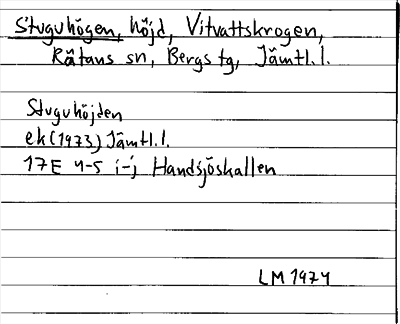 Stuguhögen, höjd, Vitvattskrogen,
Rätans sn, Bergs tg, Jämtl.l.
Stuguhöjden
ek (1973) Jämtl.l.
17E 4-5 i-j Handsjöskallen
LM 1974